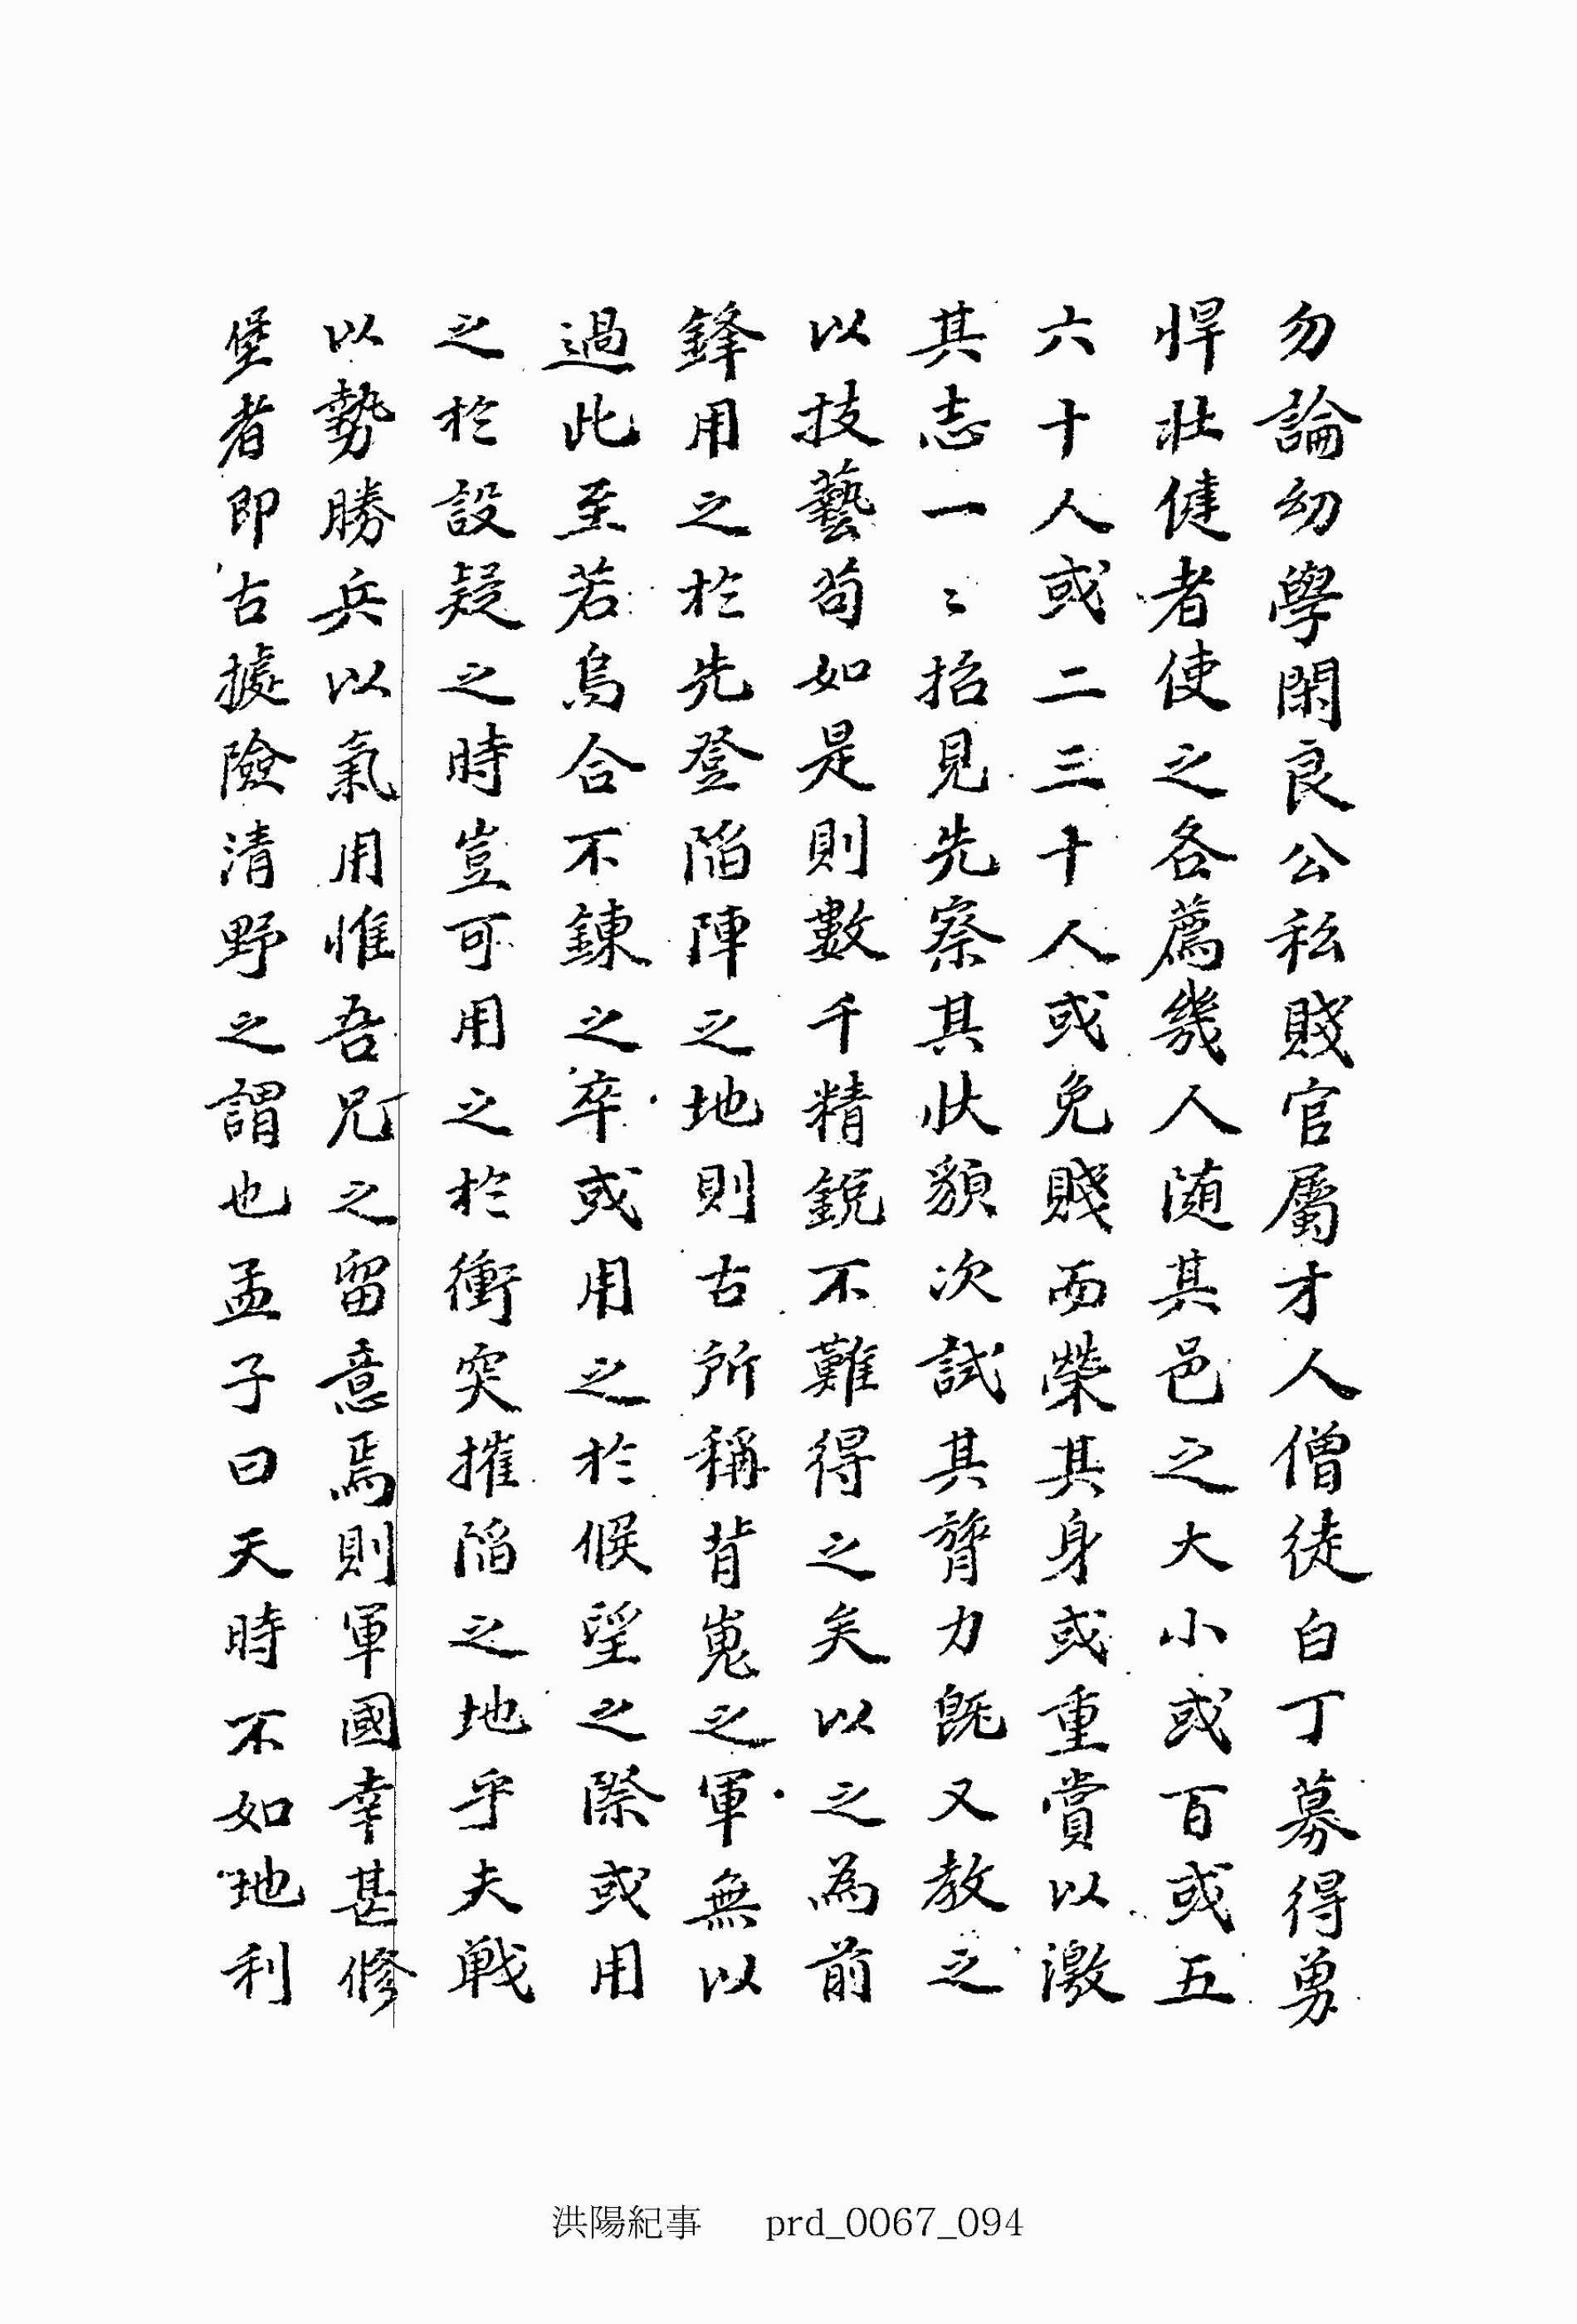 勿論幼學閑良公私賤官屬才人僧徒白丁募得勇
悍壯健者使之各薦幾人随其邑之大小或百或五
六十人或二三十人或免賤而榮其身或重賞以激
其志一〻招見先察其狀貌次試其膂力旣又教之
以技藝苟如是則數千精銳不難得之矣以之為前
鋒用之於先登陷陣之地則古所稱背嵬之軍無以
過此至若烏合不鍊之卒或用之於候望之際或用
之於設疑之時豈可用之於衝突摧陷之地乎夫戰
以勢勝兵以氣用惟吾兄之留意焉則軍國幸甚修
堡者即古據險清野之謂也孟子曰天時不如地利
洪陽紀事 prd_0067_094